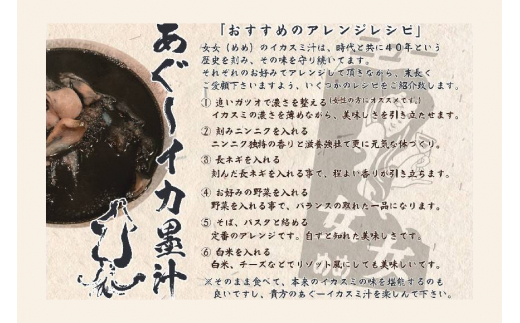 あぐーイカ墨汁
「おすすめのアレンジレシピ」
女女（めめ）のイカスミ汁は、時代と共に４０年という
歴史を刻み、その味を守り続いてます。
それぞれのお好みでアレンジして頂きながら、末長く
ご愛顧下さいますよう、いくつかのレシピをご紹介致します。
① 追いガツオで濃さを整える（女性の方にオススメです。）
イカスミの濃さを薄めながら、美味しさを引き立たせます。
② 刻みニンニクを入れる
ニンニク独特の香りと滋養強壮で更に元気な体づくり。
③ 長ネギを入れる
刻んだ長ネギを入れる事で、程よい香りが引き立ちます。
④ お好みの野菜を入れる
野菜を入れる事で、バランスの取れた一品になります。
⑤ そば、パスタと絡める
定番のアレンジです。自ずと知れた美味しさです。
⑥ 白米を入れる
白米、チーズなどでリゾット風にしても美味しいです。
※そのまま食べて、本来のイカスミの味を堪能するのも
良いですし、貴方のあぐーイカスミ汁を楽しんで下さい。
女女